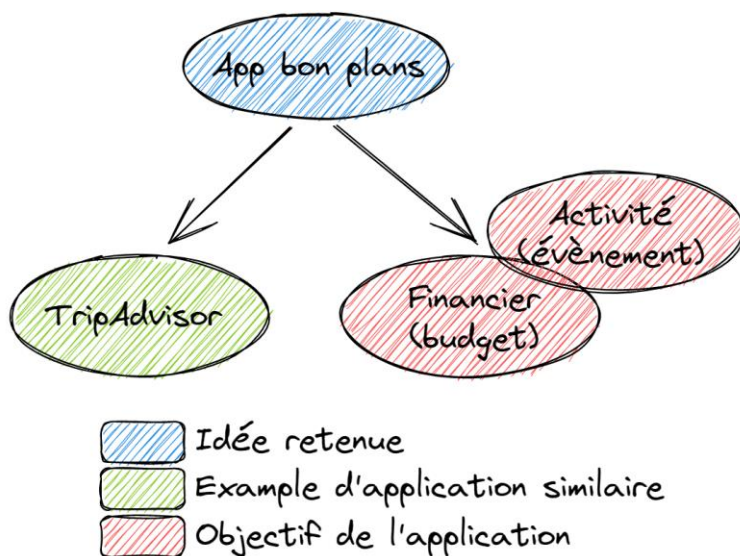 App bon plans
Activité
(évènement)
TripAdvisor
Financier
(budget)
Idée retenue
Example d'application similaire
Objectif de l'application